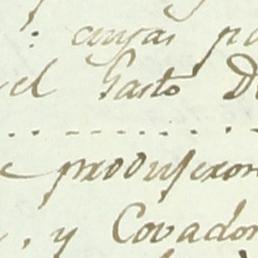 : cuyas
el Gasto
produjeron
, y Covador